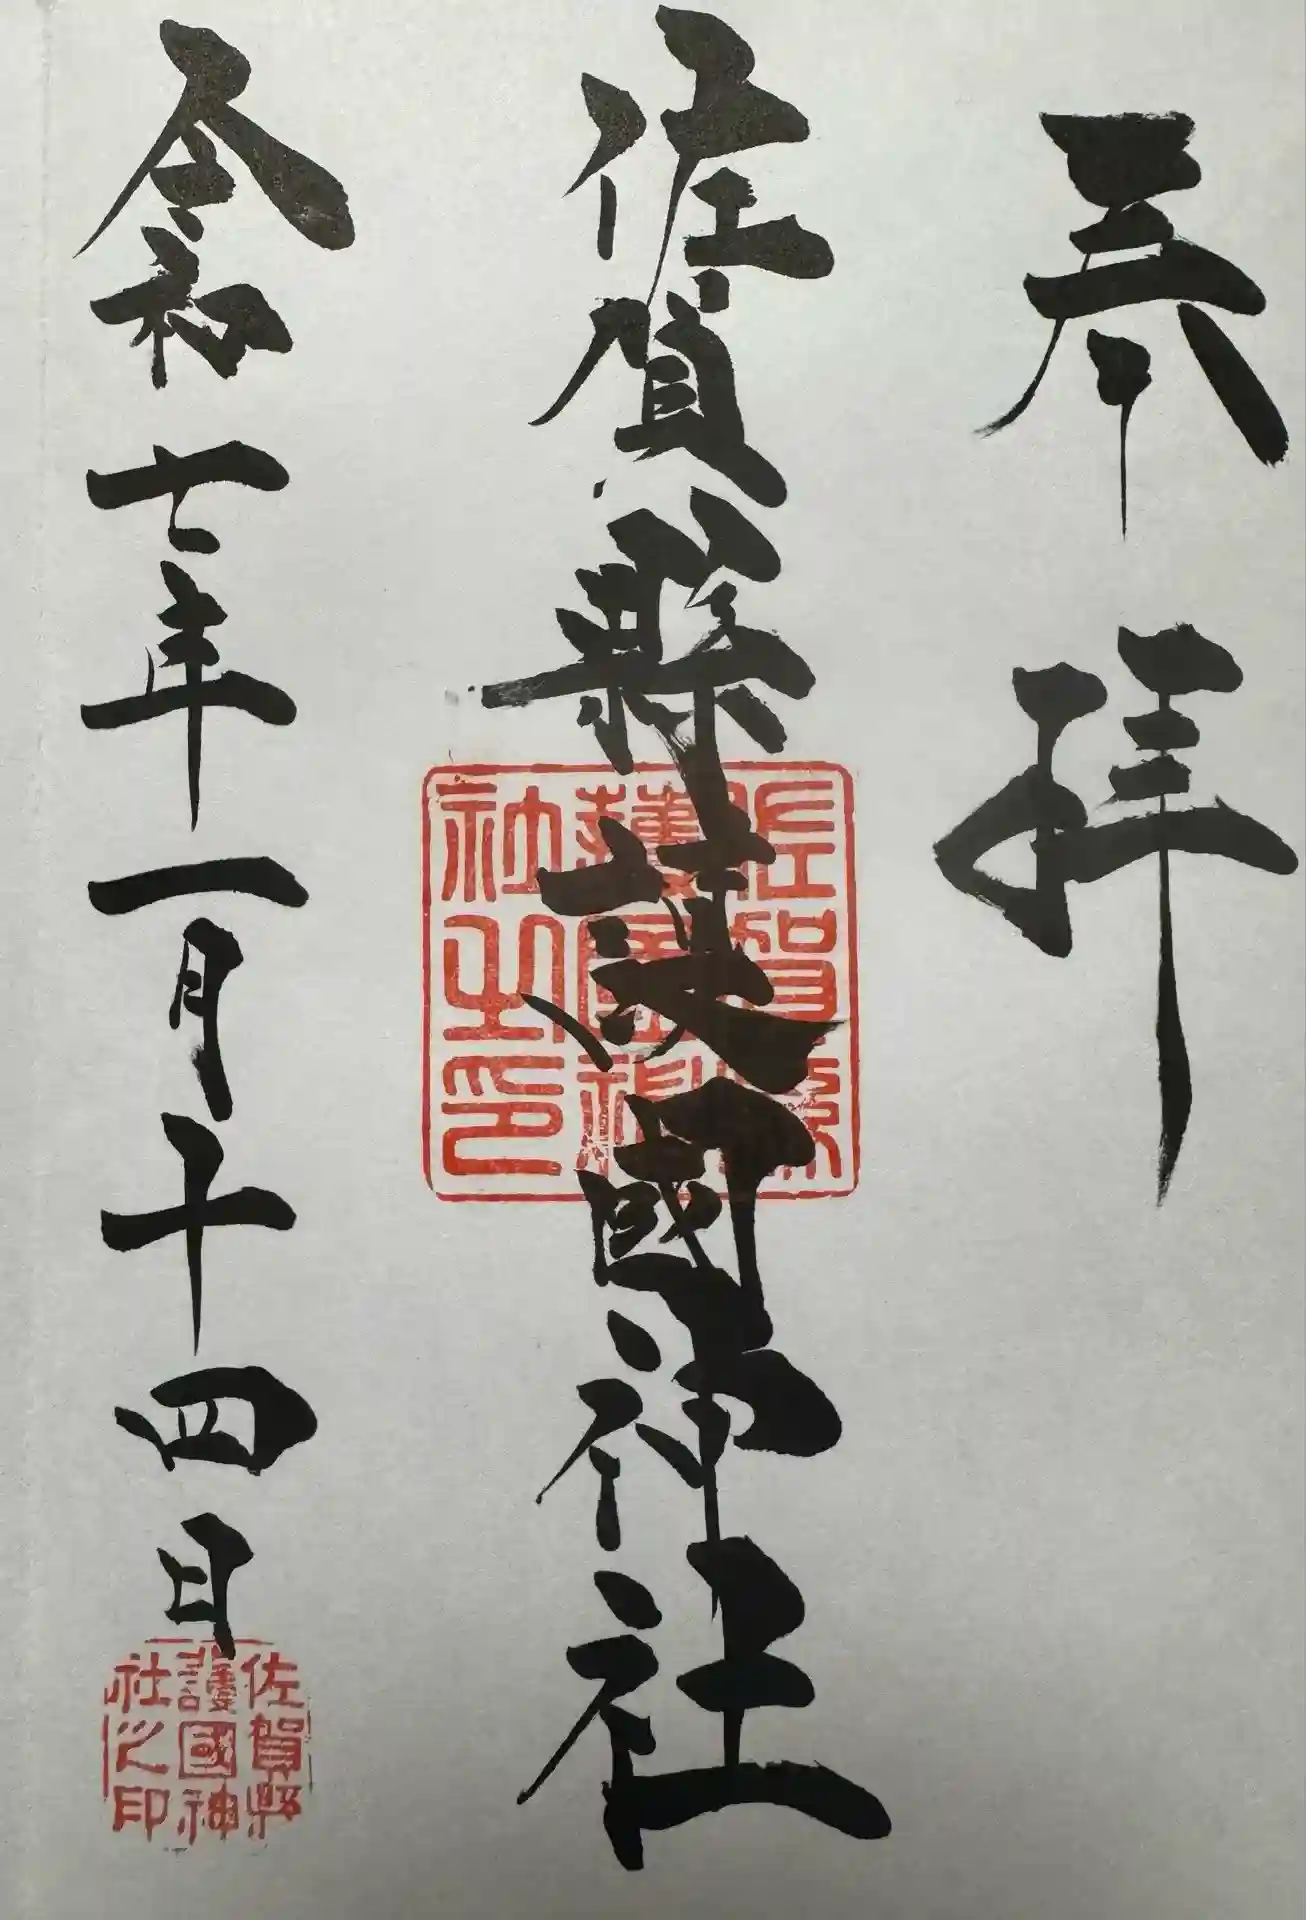 奉拝
佐賀縣護國神社
佐賀縣
護國神
社之印
令和七年一月十四日
佐賀縣
護國神
社之印